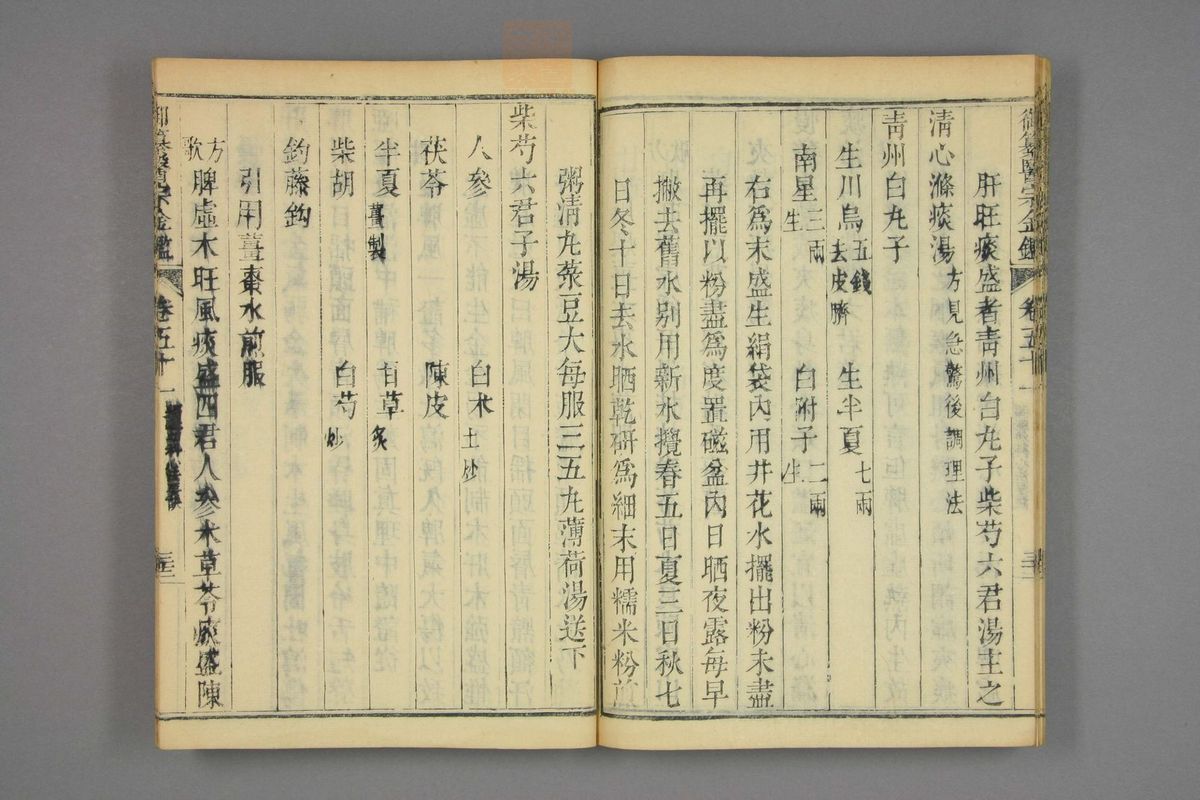 御纂醫宗金鑑 卷五十一
肝旺痰盛者青州白丸子柴芍六君湯主之
清心滌痰湯 方見急驚後調理法
青州白丸子
生川烏 五錢去皮臍 生半夏 七兩
南星 三兩生 白附子 二兩生
右爲末盛生絹袋內用井花水擺出粉未盡
再擺以粉盡爲度置磁盆內日晒夜露每早
撇去舊水別用新水攪春五日夏三日秋七
日冬十日去水晒乾研爲細末用糯米粉煎
粥清丸菉豆大每服三五丸薄荷湯送下
柴芍六君子湯
人參 白朮 土炒
茯苓 陳皮
半夏 薑製 甘草 炙
柴胡 白芍 炒
釣藤鈎
引用薑棗水煎服
方歌 脾虛木旺風痰盛四君人參朮草苓痰盛陳
御纂醫宗金鑑 卷五十一